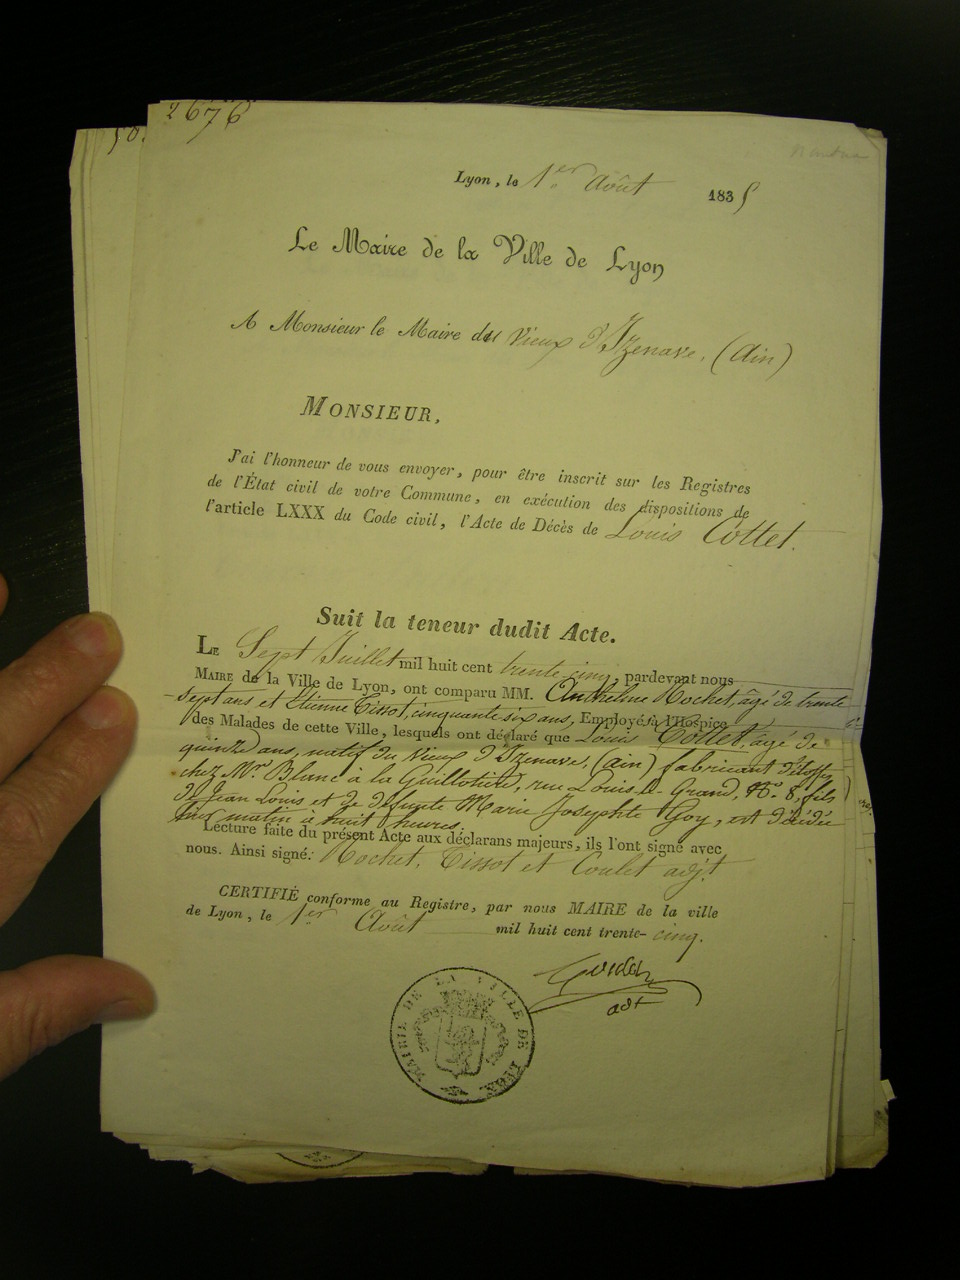 2676
Lyon, le 1er Août 1835
Le Maire de la Ville de Lyon
A Monsieur le Maire du Vieux d'Izenave, (Ain)
MONSIEUR,
J'ai l'honneur de vous envoyer, pour être inscrit sur les Registres
de l'État civil de votre Commune, en exécution des dispositions de
l'article LXXX du Code civil, l'Acte de Décès de Louis Collet.
Suit la teneur dudit Acte.
LE Sept Juillet mil huit cent trente cinq, pardevant nous
MAIRE de la Ville de Lyon, ont comparu MM. Anthelme Rochet, âgé de trente
sept ans et Etienne Tissot, cinquante six ans, Employés à l'Hospice
des Malades de cette Ville, lesquels ont déclaré que Louis Collet, âgé de
quinze ans, natif du Vieux d'Izenave, (ain) fabricant d'étoffes
chez Mr. Blanc à la Guillotière, rue Louis-le-Grand, No. 8, fils
de Jean Louis et de défunte Marie Josephte Goy, est décédé
hier matin à huit heures.
Lecture faite du présent Acte aux déclarans majeurs, ils l'ont signé avec
nous. Ainsi signé: Rochet, Tissot et Coulet adjt.
CERTIFIÉ conforme au Registre, par nous MAIRE de la ville
de Lyon, le 1er Août mil huit cent trente-cinq.
adt
MAIRIE DE LA VILLE DE LYON